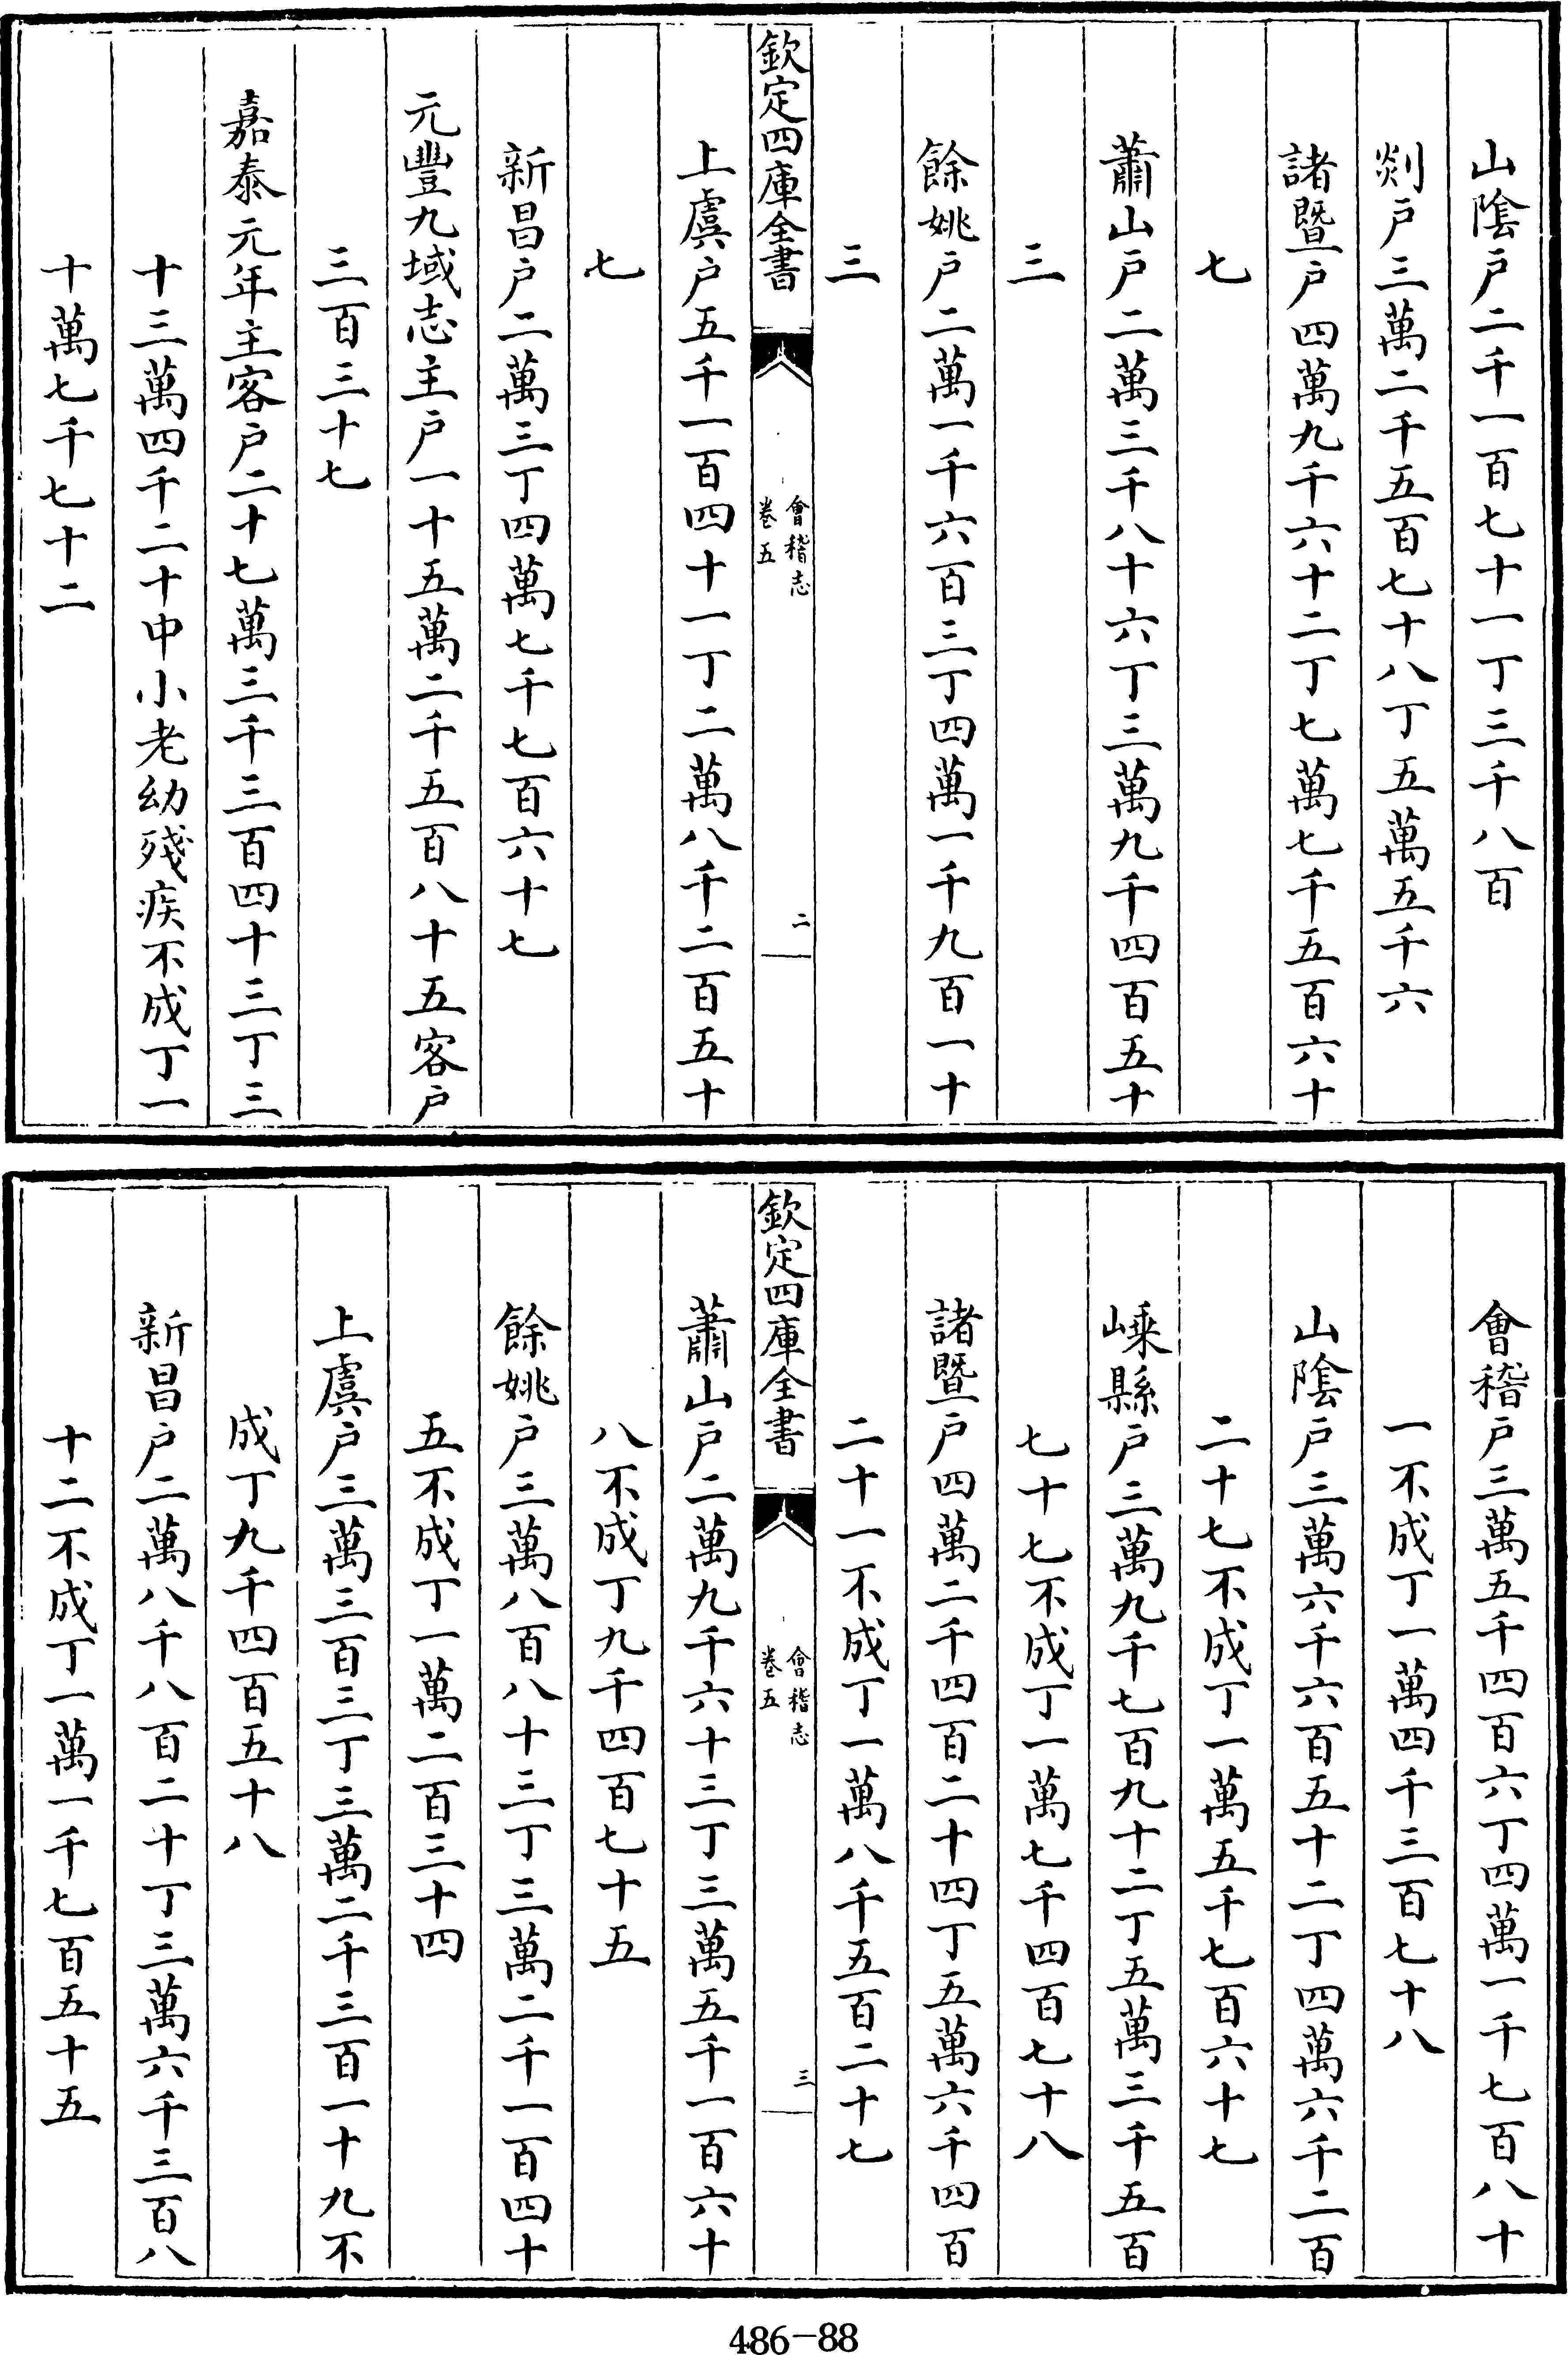 山隂戸二千一百七十一丁三千八百
剡戸三萬二千五百七十八丁五萬五千六
諸暨戸四萬九千六十二丁七萬七千五百六十
七
蕭山戸二萬三千八十六丁三萬九千四百五十
三
餘姚戸二萬一千六百三丁四萬一千九百一十
三
欽定四庫全書
會稽志
卷五
二
上虞戸五千一百四十一丁二萬八千二百五十
七
新昌戸二萬三丁四萬七千七百六十七
元豐九域志主戸一十五萬二千五百八十五客戸
三百三十七
嘉泰元年主客戸二十七萬三千三百四十三丁三
十三萬四千二十中小老幼殘疾不成丁一
十萬七千七十二
會稽戸三萬五千四百六丁四萬一千七百八十
一不成丁一萬四千三百七十八
山隂戸三萬六千六百五十二丁四萬六千二百
二十七不成丁一萬五千七百六十七
嵊縣戸三萬九千七百九十二丁五萬三千五百
七十七不成丁一萬七千四百七十八
諸暨戸四萬二千四百二十四丁五萬六千四百
二十一不成丁一萬八千五百二十七
欽定四庫全書
會稽志
卷五
三
蕭山戸二萬九千六十三丁三萬五千一百六十
八不成丁九千四百七十五
餘姚戸三萬八百八十三丁三萬二千一百四十
五不成丁一萬二百三十四
上虞戸三萬三百三丁三萬二千三百一十九不
成丁九千四百五十八
新昌戸二萬八千八百二十丁三萬六千三百八
十二不成丁一萬一千七百五十五
486-88